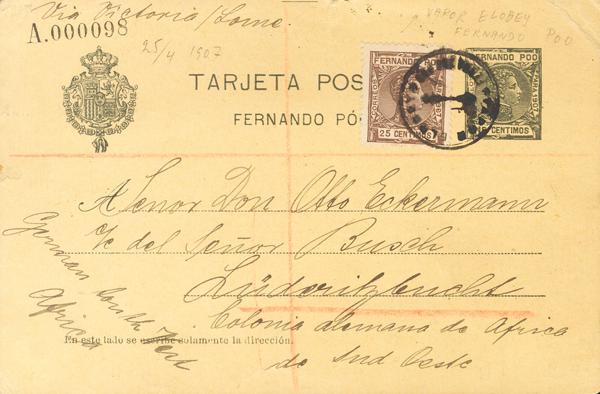 Via Victoria/Lome.
A.000098
25/4 1907
VAPOR ELOBEY
FERNANDO POO
TARJETA POS
FERNANDO PÓ
FERNANDO POO
25 CENTIMOS
FERNANDO POO
CENTIMOS
A Senor Don Otto Eckermann
c/c del Señor Busch
Lüderitzbucht
Colonia alemana de Africa
de Sud Oeste
German South West
Africa
En este lado se escribe solamente la dirección.